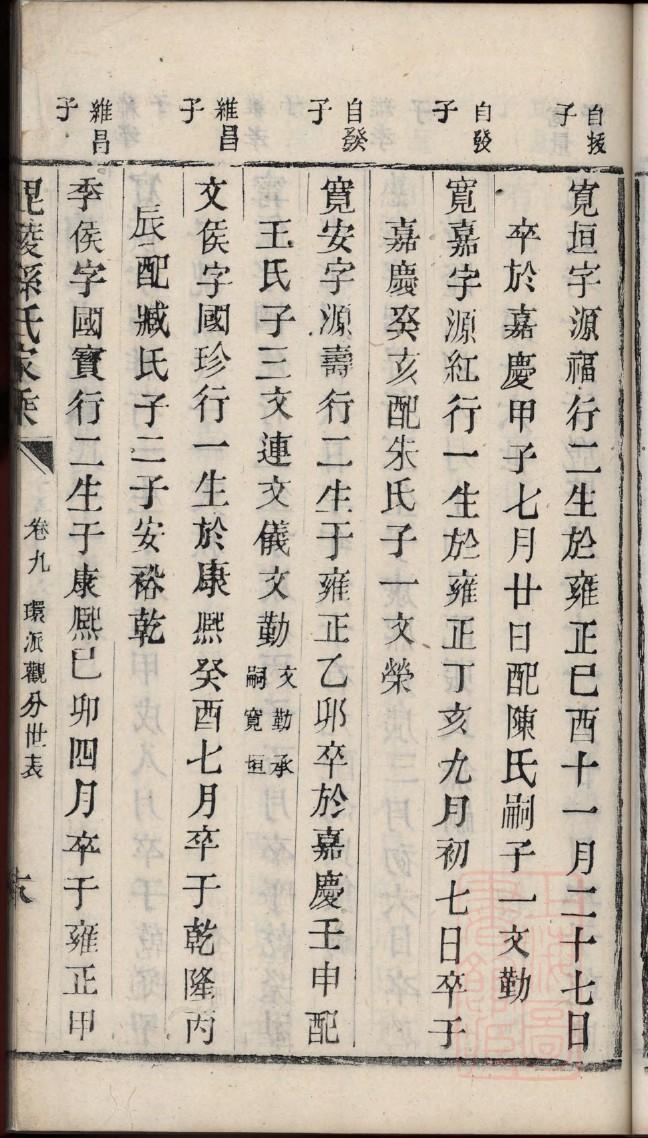 自授子
寬垣字源福行二生於雍正巳酉十一月二十七日
卒於嘉慶甲子七月廿日配陳氏嗣子一文勤
自發子
寬嘉字源紅行一生於雍正丁亥九月初七日卒于
嘉慶癸亥配朱氏子一文榮
自發子
寬安字源壽行二生于雍正乙卯卒於嘉慶壬申配
王氏子三文連文儀文勤文勤承嗣寬垣
維昌子
文侯字國珍行一生於康熙癸酉七月卒于乾隆丙
辰配臧氏子二子安裕乾
維昌子
季侯字國寶行二生于康熙巳卯四月卒于雍正甲
毘陵孫氏家乘 卷九 環派觀分世表